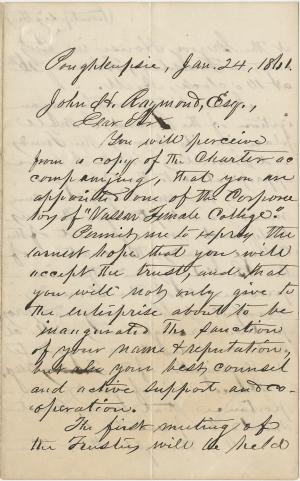 Poughkeepsie, Jan. 24, 1861.
John H. Raymond, Esq.,
Dear Sir
You will perceive
from a copy of the Charter ac
companying, that you are
appointed one of the Corpora
tors of "Vassar Female College."
Permit me to express the
earnest hope that you will
accept the trust, and that
you will not only give to
the enterprise about to be
inaugurated the sanction
of your name & reputation,
but also your best counsel
and active support and co-
operation.
The first meeting of
the Trustees will be held